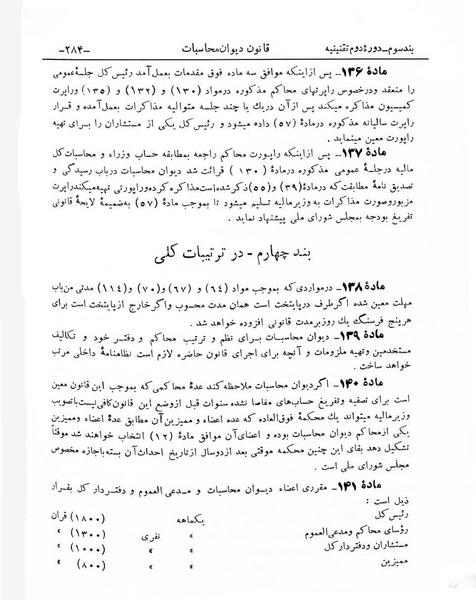 بند سوم – دورهٔ دوم تقنینیه    قانون دیوان محاسبات    –۲۸۴–
مادهٔ ۱۳۶ – پس از اینکه موافق سه ماده فوق مقدمات بعمل آمد رئیس کل جلسهٔ عمومی
را منعقد و در خصوص راپرتهای محاکم مذکوره در مواد (۱۳۰) و (۱۳۲) و (۱۳۵) و راپرت
کمیسیون مذاکره میکند پس از آن در یك یا چند جلسه متوالیه مذاکرات بعمل آمده و قرار
راپرت سالیانه مذکوره در مادهٔ (۵۷) داده میشود و رئیس کل یکی از مستشاران را برای تهیه
راپورت معین مینماید .
مادهٔ ۱۳۷ – پس از اینکه راپورت محاکم راجعه بمطابقه حساب وزراء و محاسبات کل
مالیه در جلسهٔ عمومی مذکوره در مادهٔ (۱۳۰) قرائت شد دیوان محاسبات در باب رسیدگی و
تصدیق نامهٔ مطابقت که در مادهٔ (۳۹) و (۵۵) ذکر شده است مذاکره کرده و راپورتی تهیه میکند راپرت
مزبور و صورت مذاکرات به وزیر مالیه تسلیم میشود تا بموجب مادهٔ (۵۷) به ضمیمهٔ لایحهٔ قانونی
تفریغ بودجه بمجلس شورای ملی پیشنهاد نماید .
بند چهارم – در ترتیبات کلی
مادهٔ ۱۳۸ – در مواردی که بموجب مواد (۶۴) و (۶۷) و (۷۰) و (۱۱۴) مدتی من باب
مهلت معین شده اگر طرف در پایتخت است همان مدت محسوب و اگر خارج از پایتخت است برای
هر پنج فرسنگ یك روز بر مدت قانونی افزوده خواهد شد .
مادهٔ ۱۳۹ – دیوان محاسبات برای نظم و ترتیب محاکم و دفتر خود و تکالیف
مستخدمین و تهیه ملزومات و آنچه برای اجرای قانون حاضره لازم است نظامنامهٔ داخلی مرتب
خواهد ساخت .
مادهٔ ۱۴۰ – اگر دیوان محاسبات ملاحظه کند عدهٔ محاکمی که بموجب این قانون معین
است برای تصفیه و تفریغ حساب‌های مفاصا نشده سنوات قبل از وضع این قانون کافی نیست با تصویب
وزیر مالیه میتواند یك محکمهٔ فوق العاده که عده اعضاء و ممیزین آن مطابق عدهٔ اعضاء و ممیزین
یکی از محاکم دیوان محاسبات بوده و اعضای آن موافق مادهٔ (۱۲) انتخاب خواهند شد موقتاً
تشکیل دهد بقای این چنین محکمه موقتی بعد از دو سال از تاریخ احداث آن بسته باجازه مخصوص
مجلس شورای ملی است .
مادهٔ ۱۴۱ – مقرری اعضاء دیوان محاسبات و مدعی العموم و دفتردار کل بقرار
ذیل است :
رئیس کل    یکماهه    (۱۸۰۰) قران
رؤسای محاکم و مدعی العموم    »    نفری    (۱۳۰۰) »
مستشاران و دفتردار کل    »    »    (۱۰۰۰) »
ممیزین    »    »    (۸۰۰) »